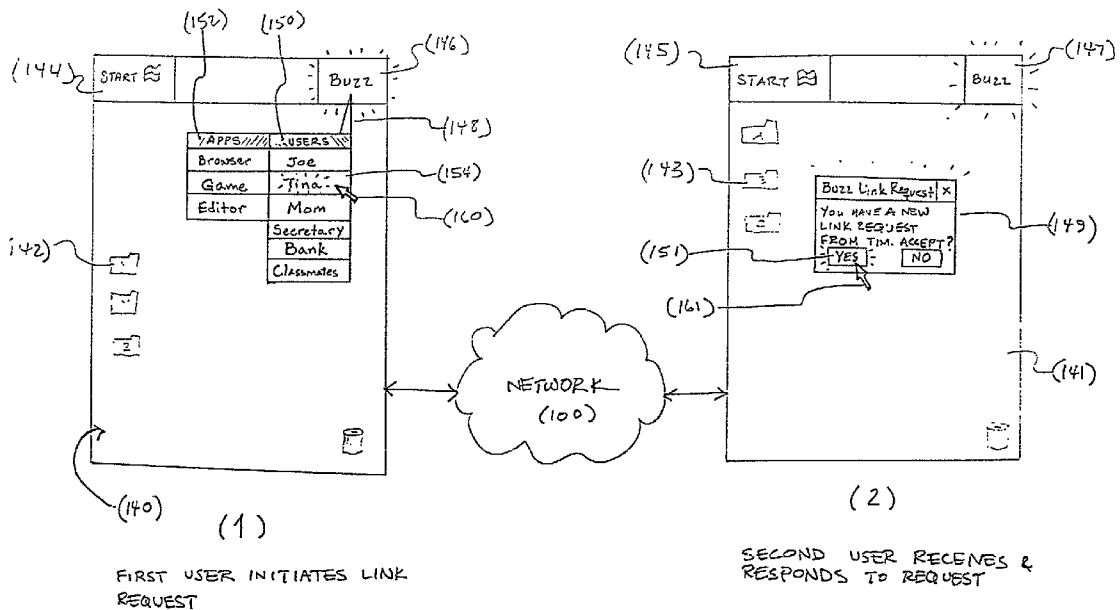 (152)
(150)
(146)
(144)
START
BUZZ
(148)
APPS
USERS
Browser
Joe
(154)
Game
Tina
(160)
Editor
Mom
Secretary
Bank
Classmates
142)
(140)
(1)
FIRST USER INITIATES LINK
REQUEST
NETWORK
(100)
(145)
(147)
START
BUZZ
(143)
Buzz Link Request x
YOU HAVE A NEW
LINK REQUEST
FROM TIM. ACCEPT?
(149)
(151)
YES
NO
(161)
(141)
2
(2)
SECOND USER RECEIVES &
RESPONDS TO REQUEST